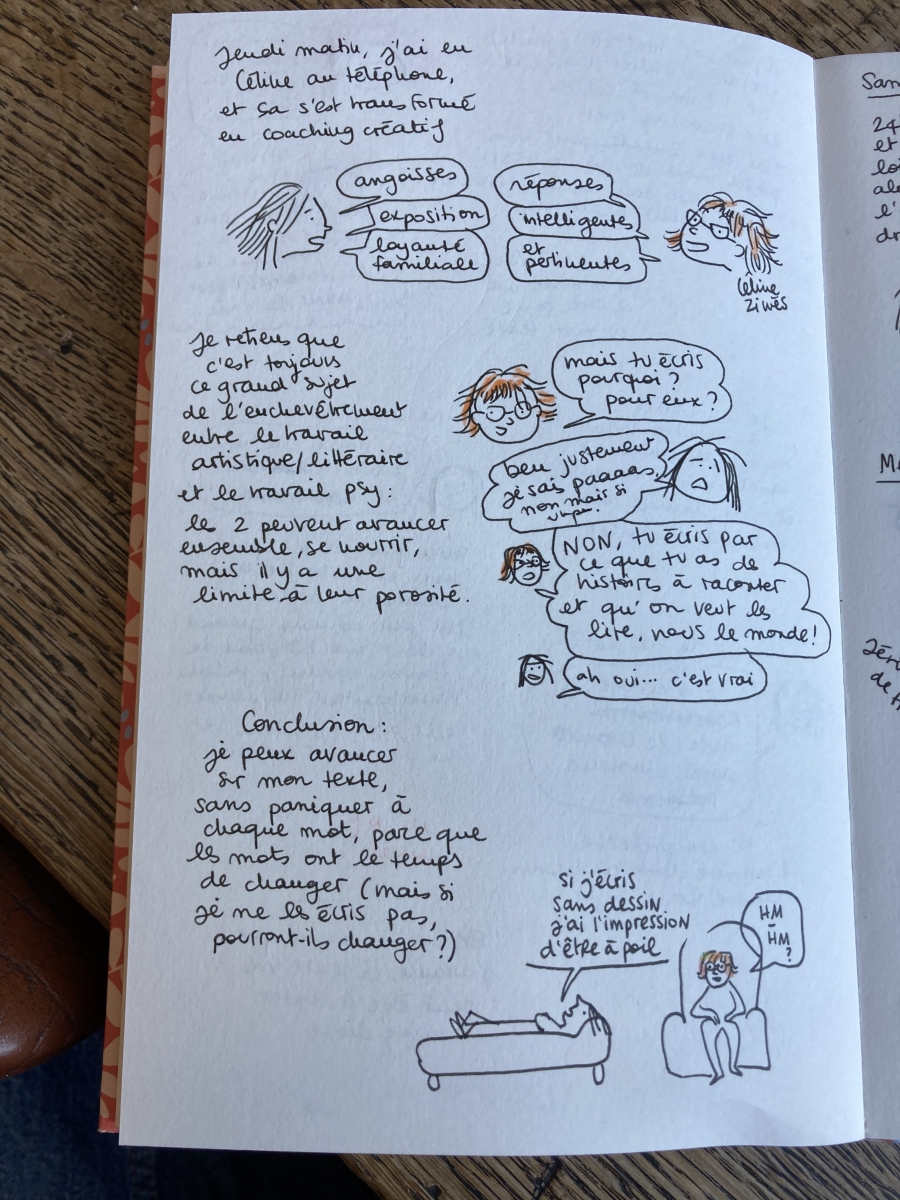 Jeudi matin, j'ai eu
Céline au téléphone,
et ça s'est transformé
en coaching créatif
angoisses
exposition
loyauté
familiale
réponses
intelligentes
et
pertinentes
Céline
Ziwès
Je retiens que
c'est toujours
ce grand sujet
de l'enchevêtrement
entre le travail
artistique/littéraire
et le travail psy :
les 2 peuvent avancer
ensemble, se nourrir,
mais il y a une
limite à leur porosité.
mais tu écris
pourquoi ?
pour eux ?
ben justement
je sais paaaas
non mais si
NON, tu écris par
ce que tu as de
histoires à raconter
et qu'on veut les
lire, nous le monde !
ah oui... c'est vrai
Conclusion :
je peux avancer
sur mon texte,
sans paniquer à
chaque mot, parce que
les mots ont le temps
de changer (mais si
je ne les écris pas,
pourront-ils changer ?)
si j'écris
sans dessin
j'ai l'impression
d'être à poil
HM
-
HM
?
San
24
et
loi
al
l'
dr
M
de